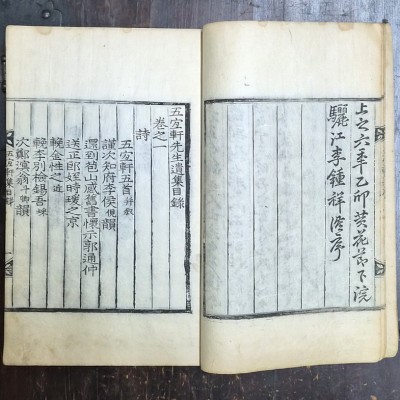 上之六年乙卯黃花節下浣
驪江李鍾祥謹序
五宜軒先生遺集目錄
卷之一
詩
五宜軒五首
謹次知府李侯韻
還到芭山感舊書懷示郭通仲
送正郎姪時瑗之京
輓金性之近
輓李別檢錫吾
次鄭濱翁韻
五宜軒集目錄